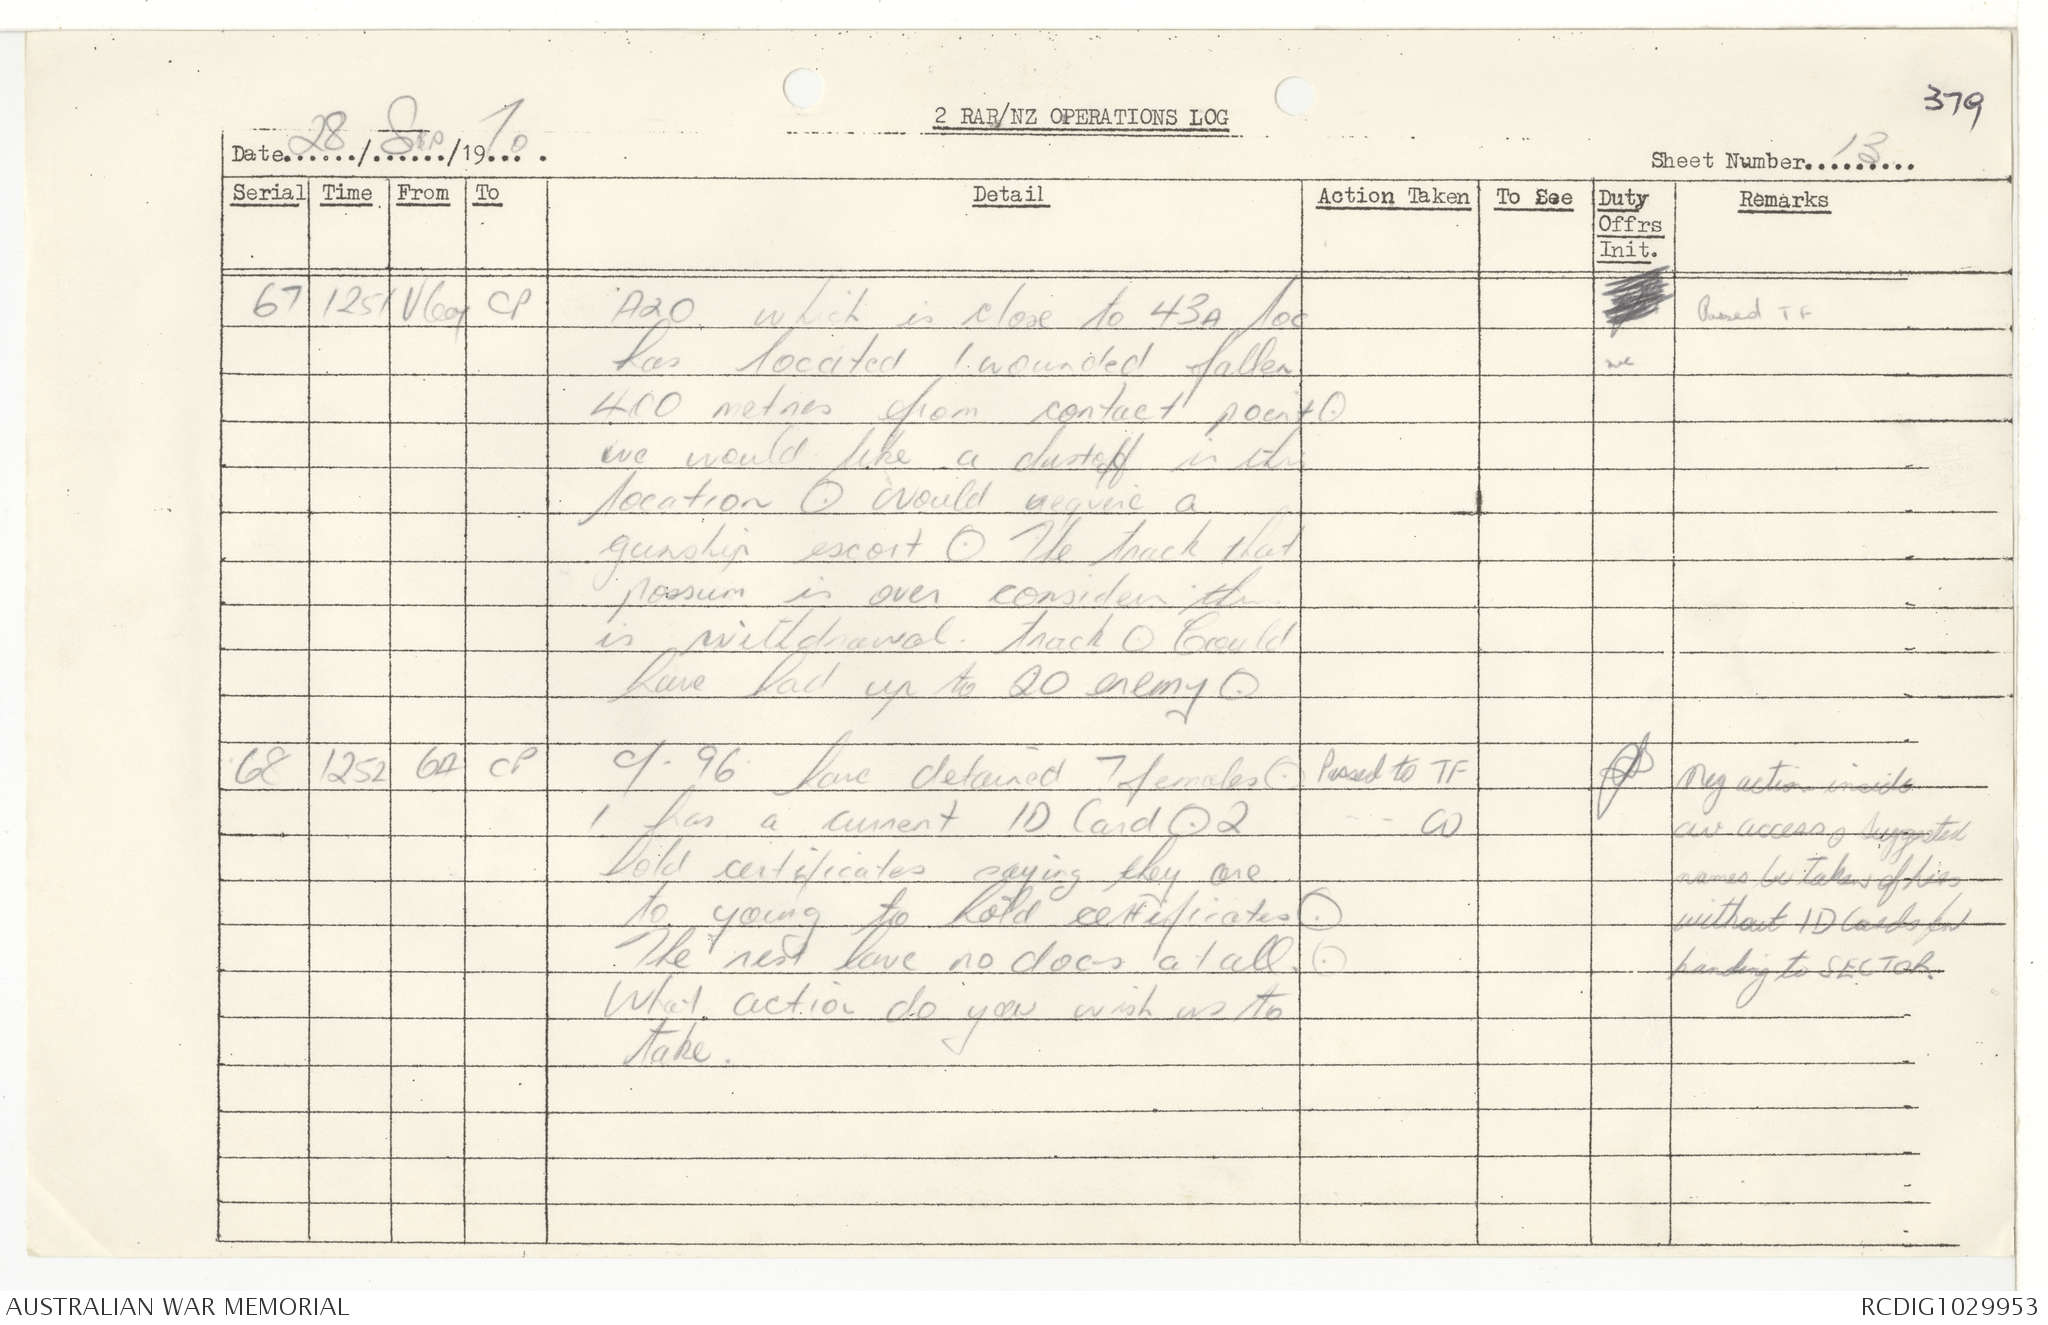 379
2 RAR/NZ OPERATIONS LOG
Date 28/Sep/1970.
Sheet Number 13
Serial Time From To Detail Action Taken To See Duty Offrs Init. Remarks
67 1251 V Coy CP A20 which is close to 43A loc Passed TF
has located 1 wounded fallen
400 metres from contact point ⊙
we would like a dustoff in this
location ⊙ would require a
gunship escort ⊙ The track that
possum is over consider this
is withdrawal track ⊙ Could
have had up to 20 enemy ⊙
68 1252 6A CP c/s 96 have detained 7 females ⊙ Passed to TF Neg action inside
1 has a current ID Card ⊙ 2 " " CO civ access ⊙ Suggested
hold certificates saying they are names be taken of
to young to hold certificates ⊙ without ID Cards for
The rest have no docs at all. ⊙ handing to SECTOR.
What action do you wish us to
take.
AUSTRALIAN WAR MEMORIAL
RCDIG1029953